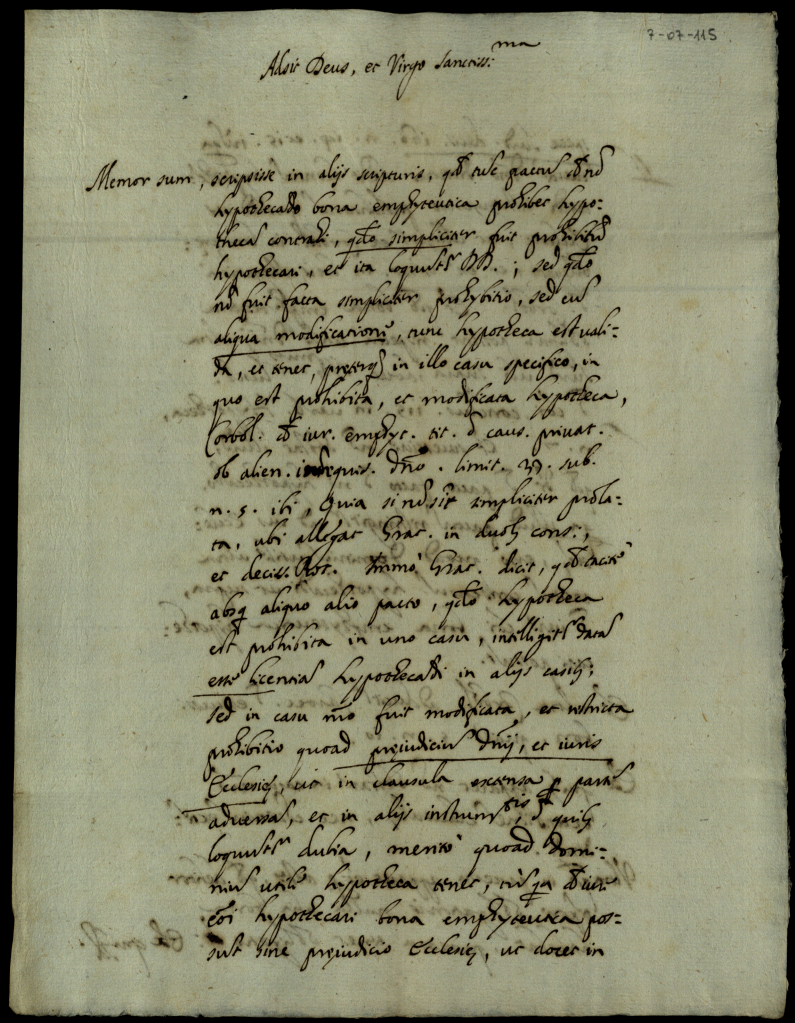 7-07-115
Adsit Deus, et Virgo Sanctiss:ma
Memor sum, scripsisse in alijs scripturis, qd tūc pactū d nō
hypothecādo bona emphyteutica prohibet hypo:
thecā contrahi, qdo simpliciter fuit prohibitū
hypothecari, et ita loquūtr DD.; sed qdo
nō fuit facta simpliciter prohybitio, sed cū
aliqua modificationē, tunc hypotheca est vali:
da, et tenet, pręterq in illo casu specifico, in
quo est prohibita, et modificata hyppotheca,
Corbol. d iur. emphyt. tit. d caus. privat.
ob alien. irrequis. dn̄o. limit. 27. sub.
n. 5. ibi, Quia si nō sit simpliciter prola:
ta, ubi allegat Grat. in duob cons:,
et deciss. Rot. Immò Grat. dicit, qd tacitè
absq aliquo alio pacto, qdo hypotheca
est prohibita in uno casu, intelligitr data
esse licentia hypothecādi in alijs casib;
sed in casu nr̄o fuit modificata, et restricta
prohibitio quoad pręiudiciū dn̄ij, et iuris
Ecclesię, ut in clausula extensa p partē
adversā, et in alijs instrumtis, d quib
loquūtr dubia, meritò quoad domi:
niū utile hypotheca tenet, cū d iure
cōi hypothecari bona emphyteutica pos:
sūt sine pręiudicio Ecclesię, ut docet in